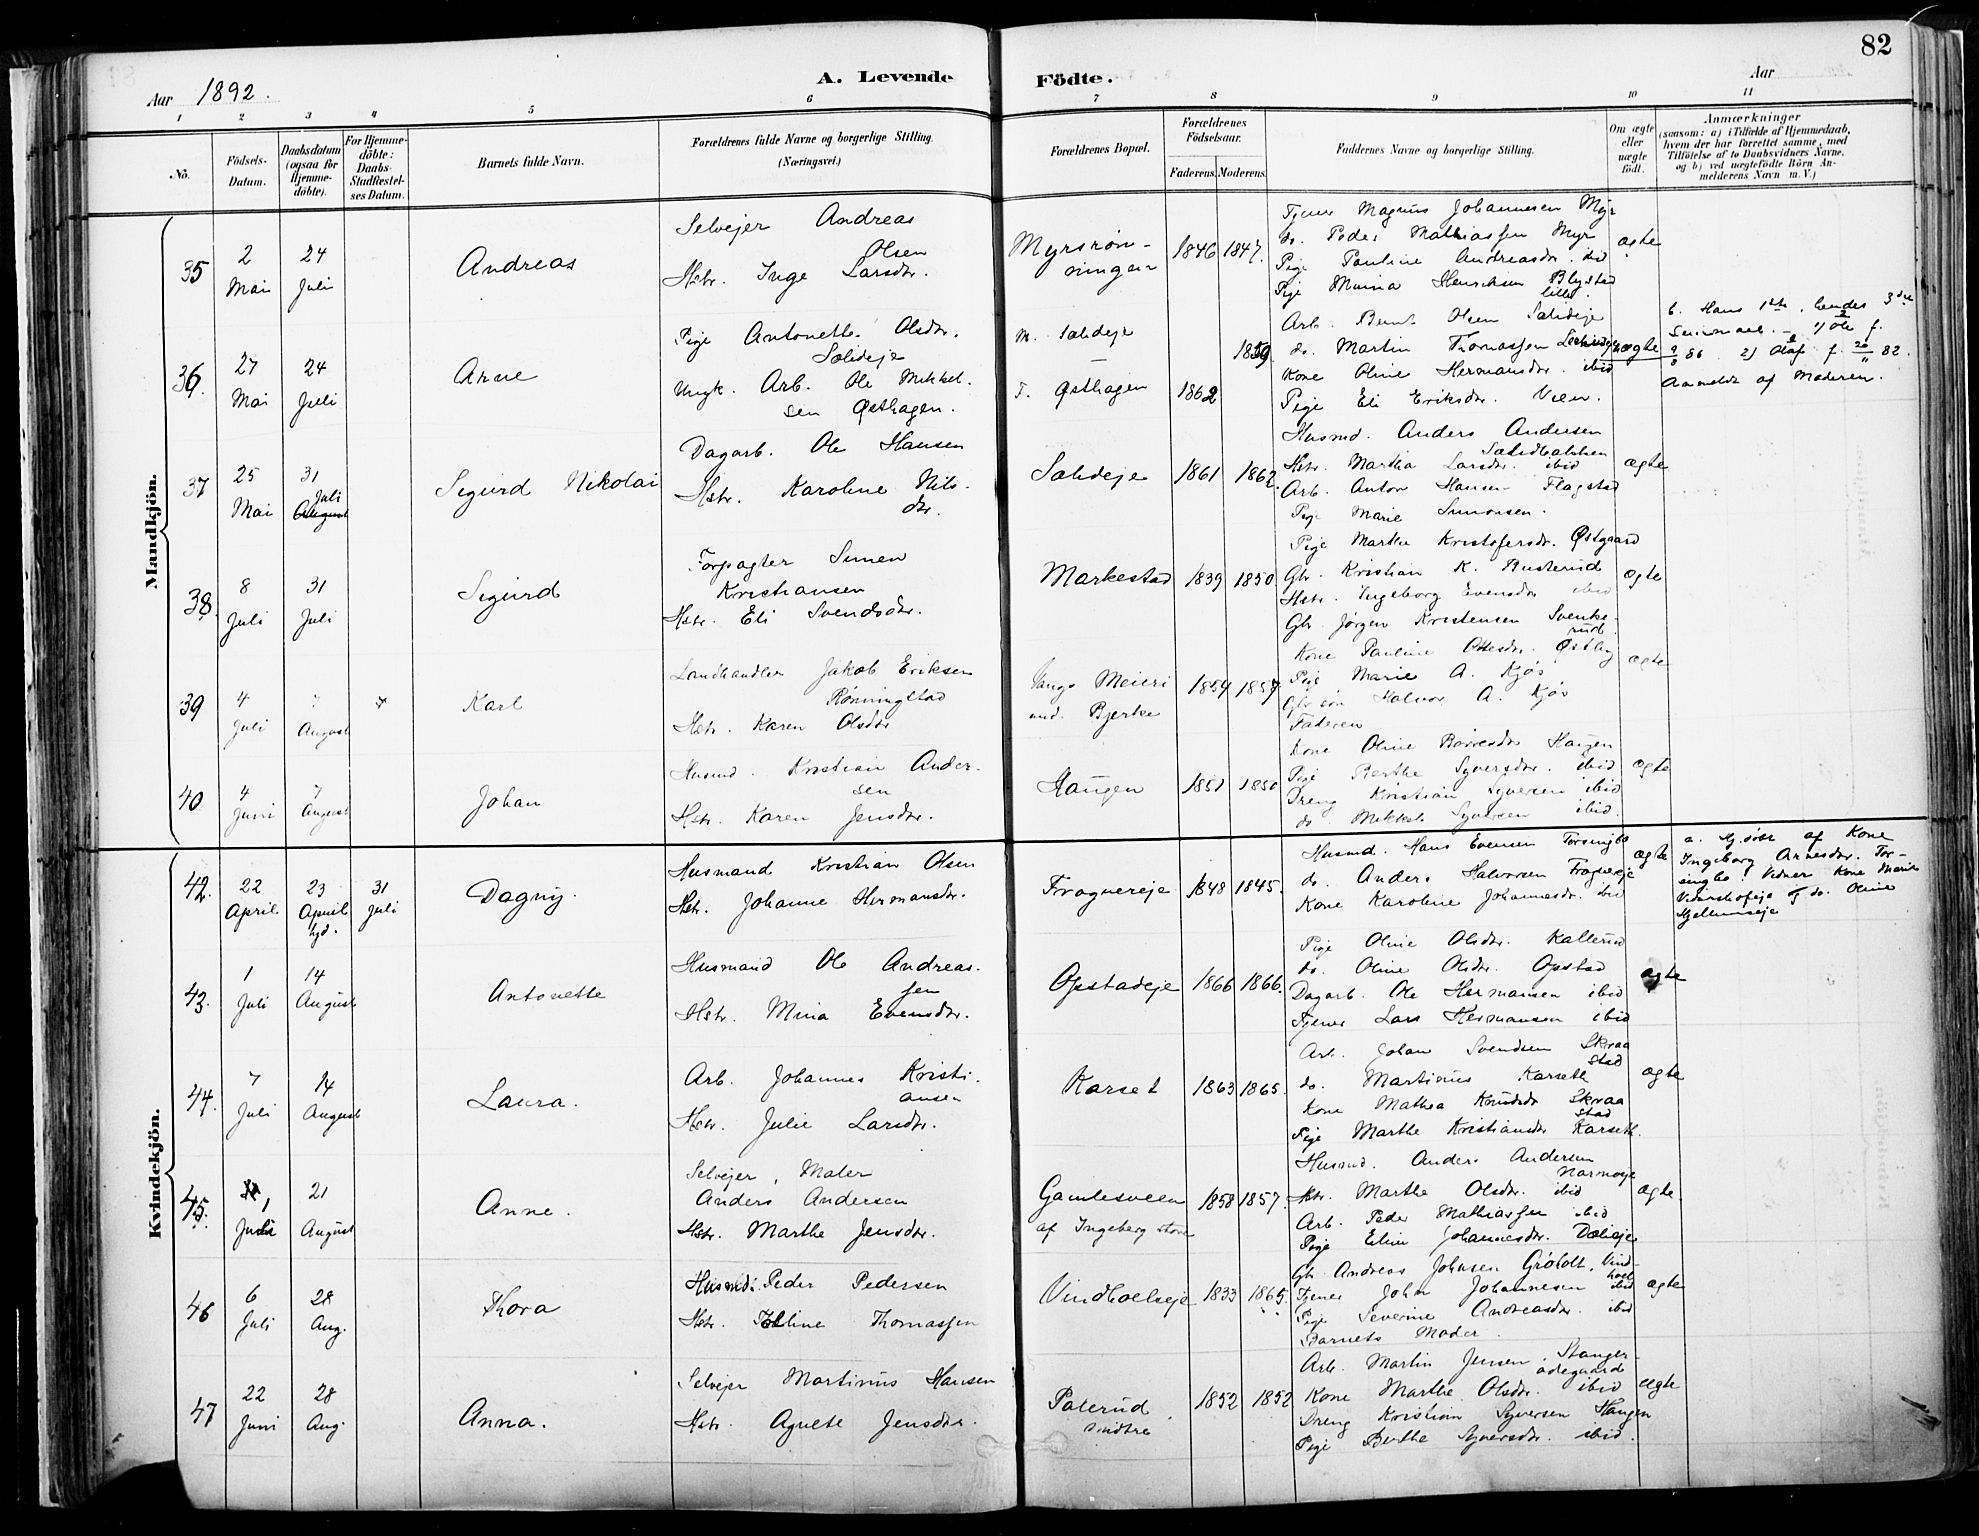 82
Aar 1892.
A. Levende Födte.
Aar
1 2 3 4 5 6 7 8 9 10 11
No.
Födsels-Datum.
Daabsdatum (ogsaa for Hjemmedöbte).
For Hjemmedöbte: Daabs-Stadfæstelses Datum.
Barnets fulde Navn.
Forældrenes fulde Navne og borgerlige Stilling. (Næringsvei.)
Forældrenes Bopæl.
Forældrenes Födselsaar.
Faderens. Moderens.
Faddernes Navne og borgerlige Stilling.
Om ægte eller uægte födt.
Anmærkninger
(saasom: a) i Tilfælde af Hjemmedaab, hvem der har forrettet samme, med Tilföielse af to Daabsvidners Navne, og b) ved uægtefödte Börn Anmelderens Navn m. V.)
Mandkjön.
35
2 Mai
24 Juli
Andreas
Selvejer Andreas
Olsen
Hstr. Inge Larsdtr.
Myrsrøn-
ningen
1846 1847.
Tjener Magnus Johannesen Myr
do. Peder Mathiassen Myr
Pige Pauline Andreasdr. ibid
Pige Mina Henriksen Blystad
lille.
ægte
36.
27 Mai
24 Juli
Arne
Pige Antonette Olsdr.
Sælideje
Ungk. Arb. Ole Mikkel-
sen Østhagen.
M. Sælideje
F. Østhagen
1862
1859
Arb. Bernt Olsen Sælideje
do. Martin Thomassen
Kone Oline Hermansdr. ibid
Pige Eli Eriksdr. Vien.
uægte
b. Hans 1ste, hendes 3die
86. 2) Olaf f. 82.
Anmeldt af Moderen.
37
25 Mai
31 Juli August
Sigurd Nikolai
Dagarb. Ole Hansen
Hstr. Karoline Nils-
dtr.
Sælideje
1861 1862.
Husmd. Anders Andersen
Hstr. Martha Larsdr. ibid
Arb. Anton Hansen Flagstad
Pige Marie Simonsen.
ægte
38.
8 Juli
31 Juli
Sigurd
Forpagter Simen
Kristiansen
Hstr. Eli Svendsdtr.
Markestad
1839 1850
Pige Marthe Kristofersdr. Østgaard
Gbr. Kristian K. Busterud
Hstr. Ingeborg Evensdr ibid
Gbr. Jørgen Kristensen Svenke-
rud.
ægte
39
4 Juli
7 August
Karl
Landhandler Jakob Eriksen
Rønningstad
Hstr. Karen Olsdtr
Vangs Meieri
und. Bjerke
1854 1857
Kone Pauline Ottesdr. Østby
Pige Marie A. Kjøs
Gbr søn Halvor A. Kjøs
Faderen
ægte
40
4 Juni
7 August
Johan
Husmd. Kristian Ander-
sen
Hstr. Karen Jensdtr.
Haugen
1851 1850
Kone Oline Børresdr Haugen
Pige Berthe Syversdr. ibid
Dreng Kristian Syversen ibid
do Mikkel Syversen ibid.
ægte
Kvindekjön.
42.
22 April
23 April hjd.
31 Juli
Dagny.
Husmand Kristian Olsen
Hstr. Johanne Hermansdtr.
Frognereje
1848 1845.
Husmd. Hans Evensen Torsingbo
do. Anders Halvorsen Frognereje
Kone Karoline Johannesdr. ibid
ægte
a. Hj.døbt af Kone
Ingeborg Arnesdr. Tor-
singbo. Vidner Kone Marie
Vidarshofeje og do. Oline
Hjellumseje
43.
1 Juli
14 August
Antonette
Husmand Ole Andreas-
sen
Hstr. Mina Evensdtr.
Opstadeje
1866 1866.
Pige Oline Olsdr. Kallerud
do. Oline Olsdr. Opstad
Dagarb. Ole Hermansen ibid
Tjener Lars Hermansen ibid
ægte
44.
7 Juli
14 August
Laura.
Arb. Johannes Kristi-
ansen
Hstr. Julie Larsdtr.
Karset
1863 1865.
Arb. Johan Svendsen Skraa
stad
do. Martinius Karseth
Kone Mathea Knudsdr Skraa
stad
Pige Marthe Kristiansdr Karseth.
ægte
45.
1 Juli
21 August
Anne.
Selvejer, Maler
Anders Andersen
Hstr. Marthe Jensdtr.
Gamlesveen
af Ingeberg store
1858 1857.
Husmd. Anders Andersen
Narmoeje
Hstr. Marthe Olsdr. ibid
Arb. Peder Mathiassen ibid
Pige Eline Johannesdr. Dælieje
ægte.
46
6 Juli
28 Aug.
Thora
Husmd. Peder Pedersen
Hstr. Thomassen
Vindhoelseje
1833 1865.
Gbr. Andreas Johnsen Grøtolt, Vind-
hoel
Tjener John Johannesen ibid
Pige Severine Andreasdr. ibid
Barnets Moder.
ægte
47
22 Juni
28 Aug.
Anna.
Selvejer Martinius Hansen
Hstr. Agnete Jensdtr.
Paterud
Vindtre
1852 1852
Arb. Martin Jensen Stanger-
ødegaard
Kone Marthe Olsdr. ibid
Dreng Kristian Syversen Haugen
Pige Berthe Syversdr. ibid.
ægte